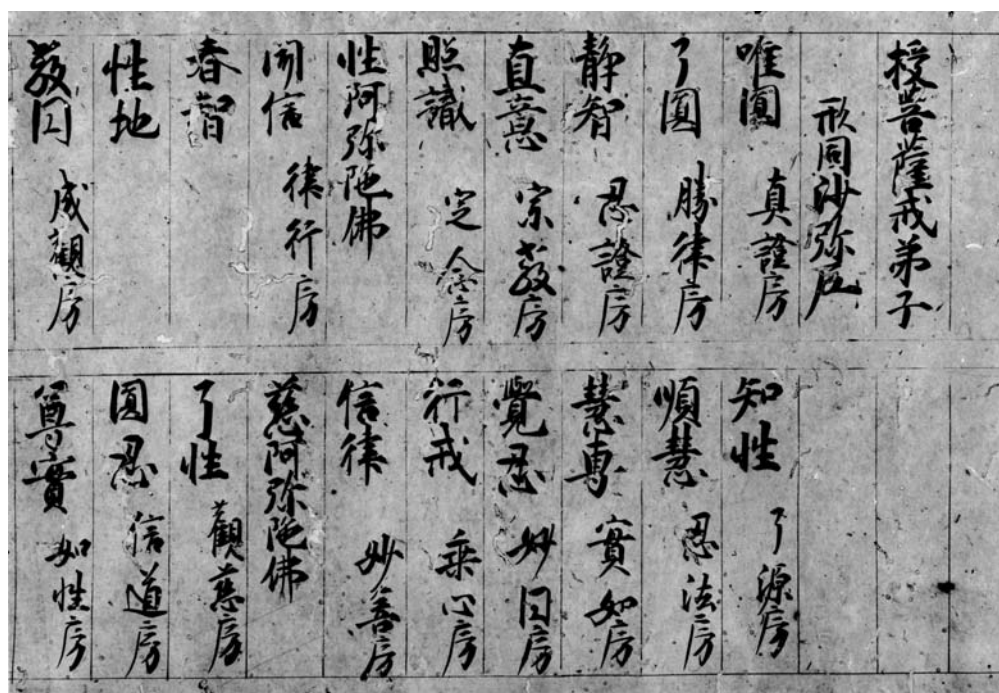 授菩薩戒弟子
形同沙弥尼
唯圓 真證房
了圓 勝律房
静智 忍證房
直意 宗教房
照識 定念房
性阿弥陀佛
聞信 律行房
春智
性地
教囙 成觀房
知性 了源房
順慧 忍法房
慧専 實如房
覺忍 妙囙房
行戒 乗心房
信律 妙善房
慈阿弥陀佛
了性 觀慈房
圓忍 信道房
尊實 如性房